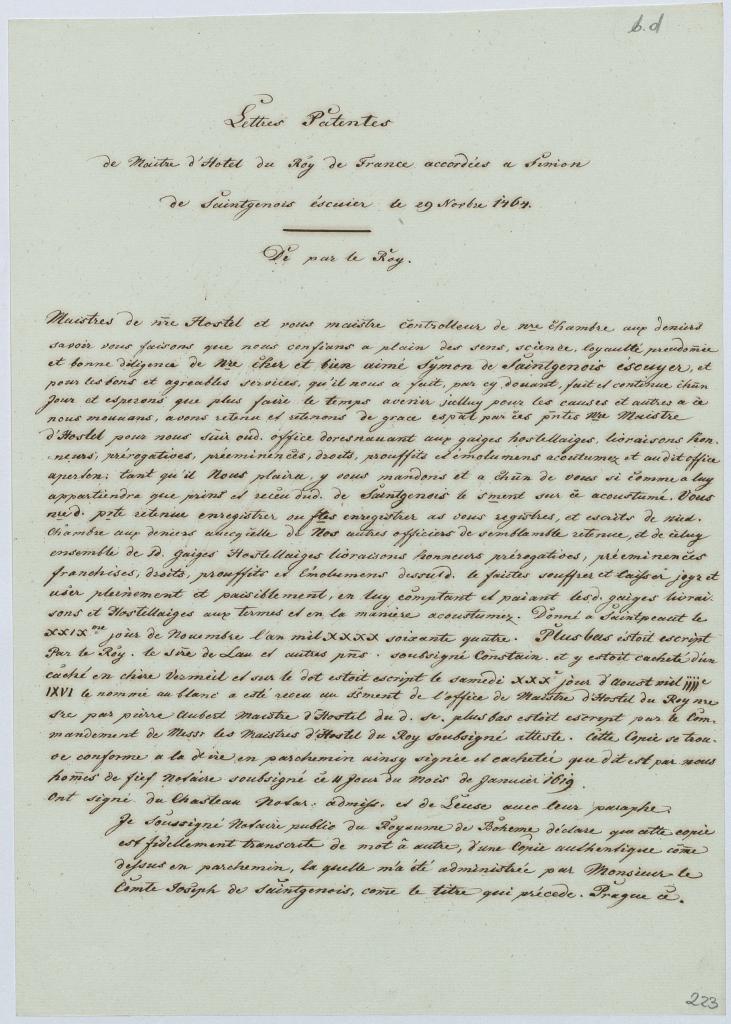 b.d
Lettres Patentes
de Maitre d'Hotel du Roy de France accordées a Simon
de Saintgenois éscuier le 29 Novbre 1464.
De par le Roy.
Maistres de nre Hostel et vous maistre Controlleur de nre Chambre aux deniers
savoir vous faisons que nous confians a plain des sens, science, loyaulté preudomie
et bonne diligence de Nre Cher et bien aimé Symon de Saintgenois éscuyer, et
pour les bons et agreables services, qu'il nous a fait, par cy devant, fait et continue chun
Jour et esperons que plus faire le temps avenir jalluy pour les causes et autres a ce
nous mouvans, avons retenu et retenons de grace espal par ces pntes Nre Maistre
d'Hostel pour nous suir oud. office doresnavant aux gaiges hostellaiges, livraisons hon-
neurs, prérogatives, prééminences, droits, prouffits et émolumens acoutumez et audit office
aperten; tant qu'il Nous plaira, y vous mandons et a chun de vous si comme a luy
appartiendra que prins et receu dud. de Saintgenois le sment sur ce acoustumé. Vous
nred. pnte retenue enregistrer ou ftes enregistrer as vous registres, et escrits de nred.
Chambre aux deniers avecq elle de Nos autres officiers de semblamble retenue, et de celuy
ensemble de Id. gaiges Hostellaiges livraisons honneurs prérogatives, prééminences
franchises, droits, prouffits et émolumens dessusd. le faistes souffrez et laissez joyr et
user pleinement et paisiblement, en luy comptant et paiant lesd. gaiges livrai-
sons et Hostellaiges aux termes et en la manière acoustumez. Donné a Saintpeautt le
XXIXme jour de Novembre l'an mil XXXX soixante quatre. Plus bas estoit escript
Par le Roy. le Sire de Lau et autres pns. soubsigné Constain. et y estoit cacheté d'un
caché en chire Vermeil et sur le dot estoit escript le samedi XXXe jour d'Aoust mil IIIIe
IXVI le nommé au blanc a esté receu au sèment de l'office de Maistre d'Hostel du Roy nre
sre par pierre Aubert Maistre d'Hostel du d. se. plus bas estoit escript par le Com-
mandement de Messr les Maistres d'Hostel du Roy soubsigné atteste. Cette Copie se trou-
ve conforme a la dre en parchemin ainsy signée et cacheteé que dit est par nous
homes de fief Notaire soubsigné ce 4 Jour du mois de Janvier 1619.
Ont signé du Chasteau Notar: admiss. et de Leuse avec leur paraphe.
Je soussigné Notaire public du Royaume de Boheme déclare que cette copie
est fidellement transcrete de mot â autre, d'une Copie authentique côme
dessus en parchemin, la quelle m'a été administrée par Monsieur le
Comte Joseph de Saintgenois, come le titre qui précede. Prague ce.
223